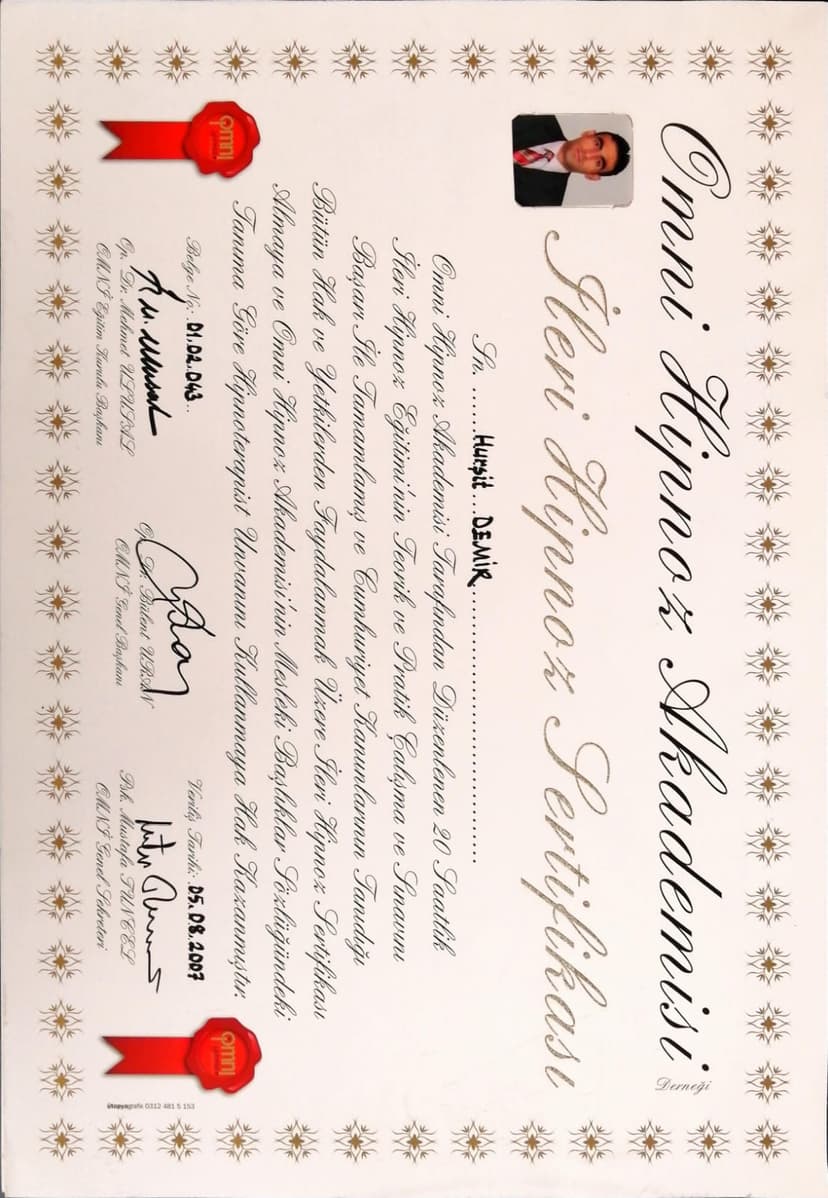 Omni Hipnoz Akademisi
Derneği
İleri Hipnoz Sertifikası
Sn. ......Hurşit...DEMİR..............................
Omni Hipnoz Akademisi Tarafından Düzenlenen 20 Saatlik
İleri Hipnoz Eğitimi'nin Teorik ve Pratik Çalışma ve Sınavını
Başarı İle Tamamlamış ve Cumhuriyet Kanunlarının Tanıdığı
Bütün Hak ve Yetkilerden Faydalanmak Üzere İleri Hipnoz Sertifikası
Almaya ve Omni Hipnoz Akademisi'nin Mesleki Başlıklar Sözlüğündeki
Tanıma Göre Hipnoterapist Unvanını Kullanmaya Hak Kazanmıştır.
Belge No: 01.02.043..
Veriliş Tarihi: 05.08.2007
Op. Dr. Mehmet ULUSAL
OMNİ Eğitim Kurulu Başkanı
Op. Dr. Bülent URAN
OMNİ Genel Başkanı
Psk. Mustafa TUNCEL
OMNİ Genel Sekreteri
omni
omni
ütopyagrafik 0312 481 5 153